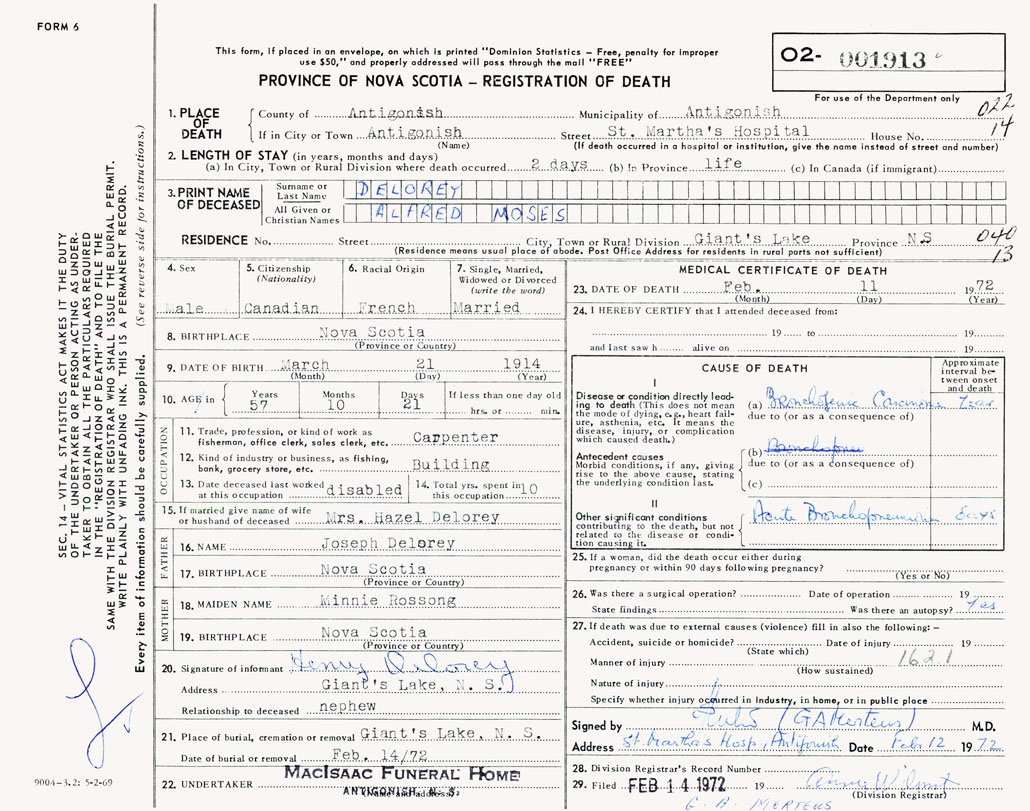 FORM 6
This form, if placed in an envelope, on which is printed "Dominion Statistics – Free, penalty for improper
use $50," and properly addressed will pass through the mail "FREE"
PROVINCE OF NOVA SCOTIA – REGISTRATION OF DEATH
02- 001913
For use of the Department only
022
14
1. PLACE OF DEATH
County of Antigonish Municipality of Antigonish
If in City or Town Antigonish Street St. Martha's Hospital House No.
(Name) (If death occurred in a hospital or institution, give the name instead of street and number)
2. LENGTH OF STAY (in years, months and days)
(a) In City, Town or Rural Division where death occurred 2 days (b) in Province life (c) In Canada (if immigrant)
3. PRINT NAME OF DECEASED
Surname or Last Name DELOREY
All Given or Christian Names ALFRED MOSES
RESIDENCE No. Street City, Town or Rural Division Giant's Lake Province N.S
(Residence means usual place of abode. Post Office Address for residents in rural parts not sufficient)
040
13
4. Sex
Male
5. Citizenship
(Nationality)
Canadian
6. Racial Origin
French
7. Single, Married,
Widowed or Divorced
(write the word)
Married
8. BIRTHPLACE Nova Scotia
(Province or Country)
9. DATE OF BIRTH March 21 1914
(Month) (Day) (Year)
10. AGE in Years Months Days If less than one day old
57 10 21 hrs. or min.
OCCUPATION
11. Trade, profession, or kind of work as
fisherman, office clerk, sales clerk, etc. Carpenter
12. Kind of industry or business, as fishing,
bank, grocery store, etc. Building
13. Date deceased last worked
at this occupation disabled
14. Total yrs. spent in
this occupation 10
15. If married give name of wife
or husband of deceased Mrs. Hazel Delorey
FATHER
16. NAME Joseph Delorey
17. BIRTHPLACE Nova Scotia
(Province or Country)
MOTHER
18. MAIDEN NAME Minnie Rossong
19. BIRTHPLACE Nova Scotia
(Province or Country)
20. Signature of informant Henry Delorey
Address Giant's Lake, N. S.
Relationship to deceased nephew
21. Place of burial, cremation or removal Giant's Lake, N. S.
Date of burial or removal Feb. 14/72
22. UNDERTAKER MacIsaac Funeral Home
ANTIGONISH, N. S.
(Name and address)
MEDICAL CERTIFICATE OF DEATH
23. DATE OF DEATH Feb. 11 1972
(Month) (Day) (Year)
24. I HEREBY CERTIFY that I attended deceased from:
19 to 19
and last saw h alive on 19
CAUSE OF DEATH
Approximate
interval be-
tween onset
and death
I
Disease or condition directly lead-
ing to death (This does not mean
the mode of dying, e.g., heart fail-
ure, asthenia, etc. It means the
disease, injury, or complication
which caused death.)
(a) Bronchogenic Carcinoma Year
due to (or as a consequence of)
Antecedent causes
Morbid conditions, if any, giving
rise to the above cause, stating
the underlying condition last.
(b) Bronchopneu
due to (or as a consequence of)
(c)
II
Other significant conditions
contributing to the death, but not
related to the disease or condi-
tion causing it.
Acute Bronchopneumonia Days
25. If a woman, did the death occur either during
pregnancy or within 90 days following pregnancy?
(Yes or No)
26. Was there a surgical operation? Date of operation 19
State findings Was there an autopsy? Yes
27. If death was due to external causes (violence) fill in also the following: –
Accident, suicide or homicide? Date of injury 19
(State which)
Manner of injury 162.1
(How sustained)
Nature of injury
Specify whether injury occurred in industry, in home, or in public place
Signed by (GAMerteus) M.D.
Address St. Martha's Hosp., Antigonish Date Feb 12 1972
28. Division Registrar's Record Number
29. Filed FEB 14 1972 19
(Division Registrar)
G. A. MERTEUS
SEC. 14 – VITAL STATISTICS ACT MAKES IT THE DUTY
OF THE UNDERTAKER OR PERSON ACTING AS UNDER-
TAKER TO OBTAIN ALL THE PARTICULARS REQUIRED
IN THE "REGISTRATION OF DEATH" AND TO FILE THE
SAME WITH THE DIVISION REGISTRAR WHO SHALL ISSUE THE BURIAL PERMIT.
WRITE PLAINLY WITH UNFADING INK. THIS IS A PERMANENT RECORD.
Every item of information should be carefully supplied. (See reverse side for instructions.)
9004-3.2: 5-2-69